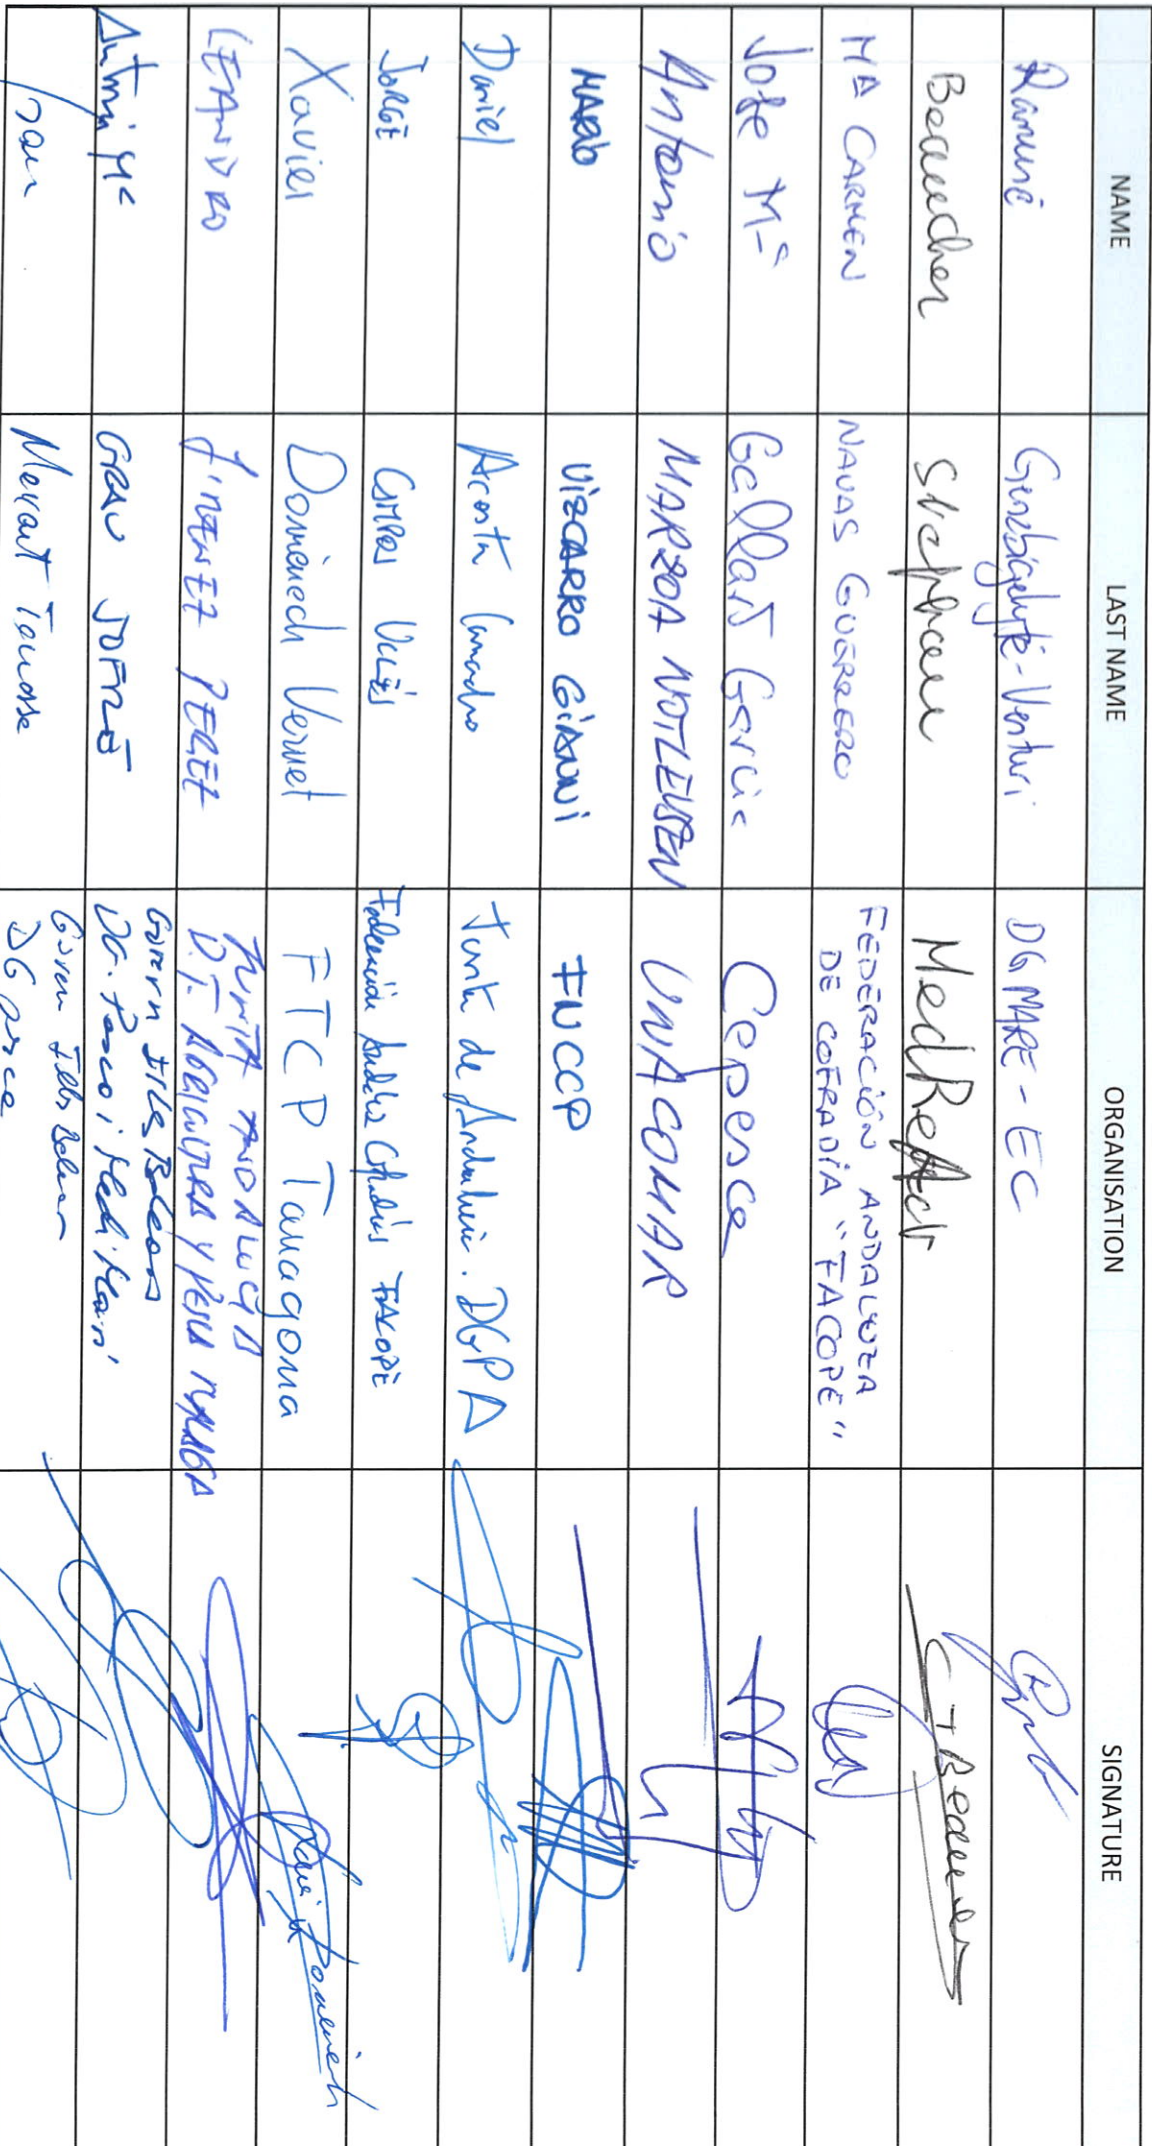 NAME LAST NAME ORGANISATION SIGNATURE
Ramunė Genzbigelytė-Venturi DG MARE - EC
Beaucher Stephan MedReAct C + Beaucher
Mª CARMEN NAVAS GUERRERO FEDERACIÓN ANDALUZA
DE COFRADÍA "FACOPE"
Jose Mª Gallart Garcia Cepesca
Antonio MARZOA NOTLEVSEN UNACOMAR
MARIO VIZCARRO GIANNI FNCCP
Daniel Acosta Camacho Junta de Andalucía. DGPA
JORGE CAMPOS Federación Andaluza Cofradías FACOPE
Xavier Domènech Vernet FTCP Tarragona Xavier Domènech
LEANDRO JIMENEZ PEREZ JUNTA ANDALUCIA
D.T. AGRICULTURA Y PESCA MALAGA
Antoni Mª GRAU JOFRE Govern Illes Balears
DG. Pesca i Medi Marí
Joan Mercant Govern Illes Balears
DG Pesca